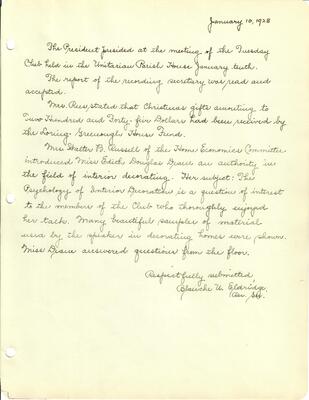 January 10, 1928
The President presided at the meeting of the Tuesday
Club held in the Unitarian Parish House January tenth.
The report of the recording secretary was read and
accepted.
Mrs. Rees stated that Christmas gifts amounting to
Two Hundred and Forty-five Dollars had been received by
the Loring Greenough House Fund.
Mrs. Walter B. Russell of the Home Economics Committee
introduced Miss Edith Douglas an authority in
the field of interior decorating. Her subject: The
Psychology of Interior Decoration is a question of interest
to the members of the Club who thoroughly enjoyed
her talk. Many beautiful samples of material
used by the speaker in decorating homes were shown.
Miss answered questions from the floor.
Respectfully submitted,
Blanche U. Eldridge,
Rec. Sec.